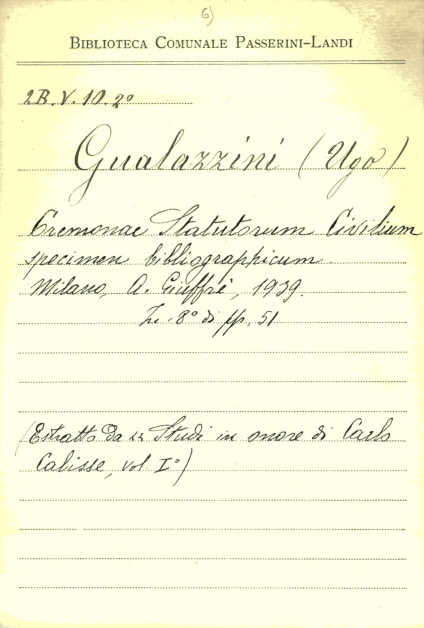 6)
BIBLIOTECA COMUNALE PASSERINI-LANDI
2B.V.10.2º
Gualazzini (Ugo)
Cremonae Statutorum Civilium
specimen bibliographicum.
Milano, A. Giuffrè, 1939.
8º di pp, 51
(Estratto da << Studi in onore di Carlo
Calisse, vol Iº)